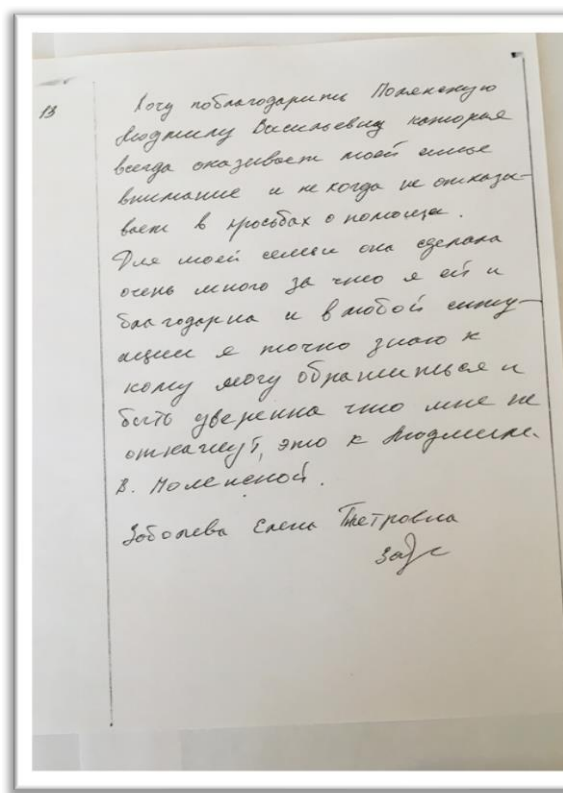 13
Хочу поблагодарить
Людмилу Васильевну которая
всегда оказывает моей семье
внимание и не когда не отказы-
вает в просьбах о помощи.
Для моей семьи она сделала
очень много за что я ей и
благодарна и в любой ситу-
ации я точно знаю к
кому могу обратиться и
быть уверенна что мне не
откажут, это к Людмиле
В.
Елена Петровна